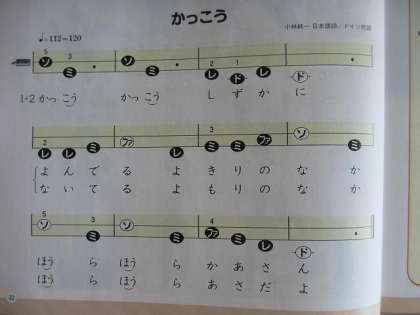 かっこう
♩=112~120
小林純一 日本語詞/ドイツ民謡
5 3 2 1
ソ ミ ソ ミ レ ド レ ド
1・2 かっ こう かっ こう し ず か に
2 3
レ レ ミ ファ レ ミ ミ ファ ソ ミ
よ ん で る よ き り の な か
な い て る よ も り の な か
5 3 4
ソ ミ ソ ミ ファ ミ レ ド
ほう ら ほう ら か あ さ ん
ほう ら ほう ら あ さ だ よ
22